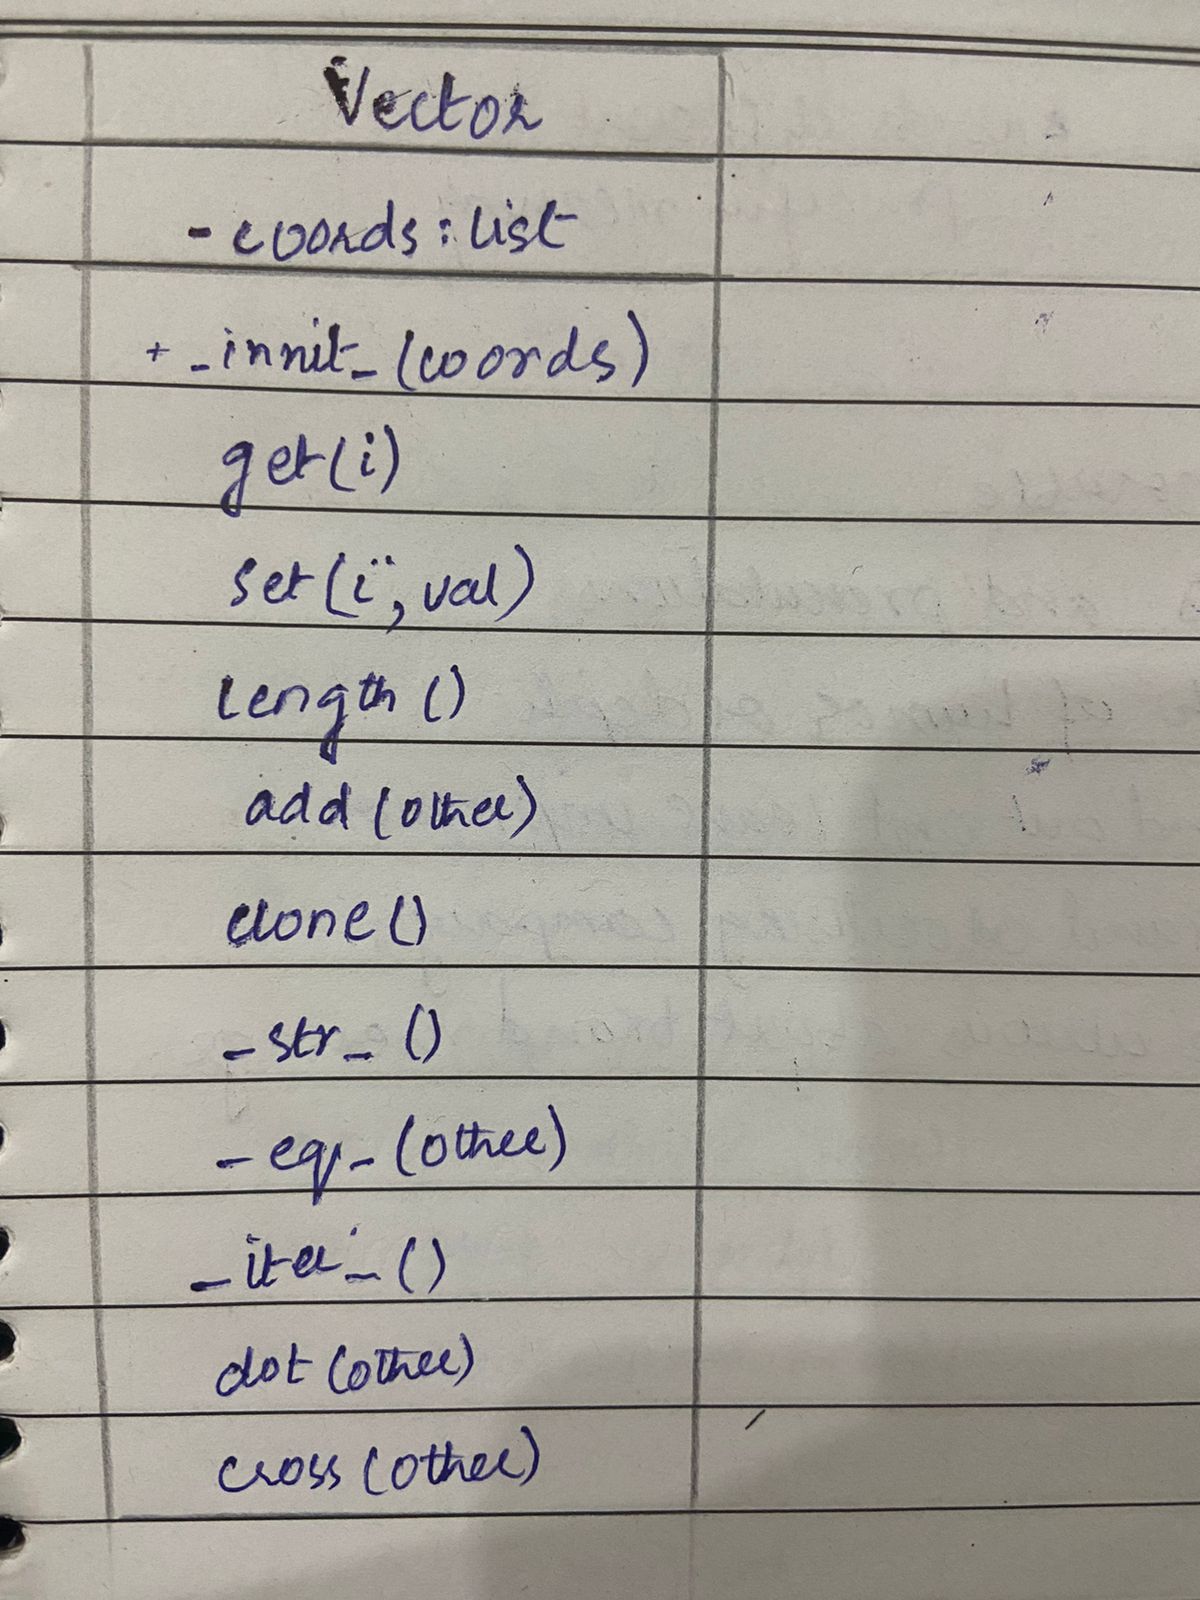 Vector
- coords : list
+ _innit_ (coords)
get(i)
set(i, val)
length ()
add (other)
clone ()
_str_ ()
_eq_ (other)
_iter_ ()
dot (other)
cross (other)